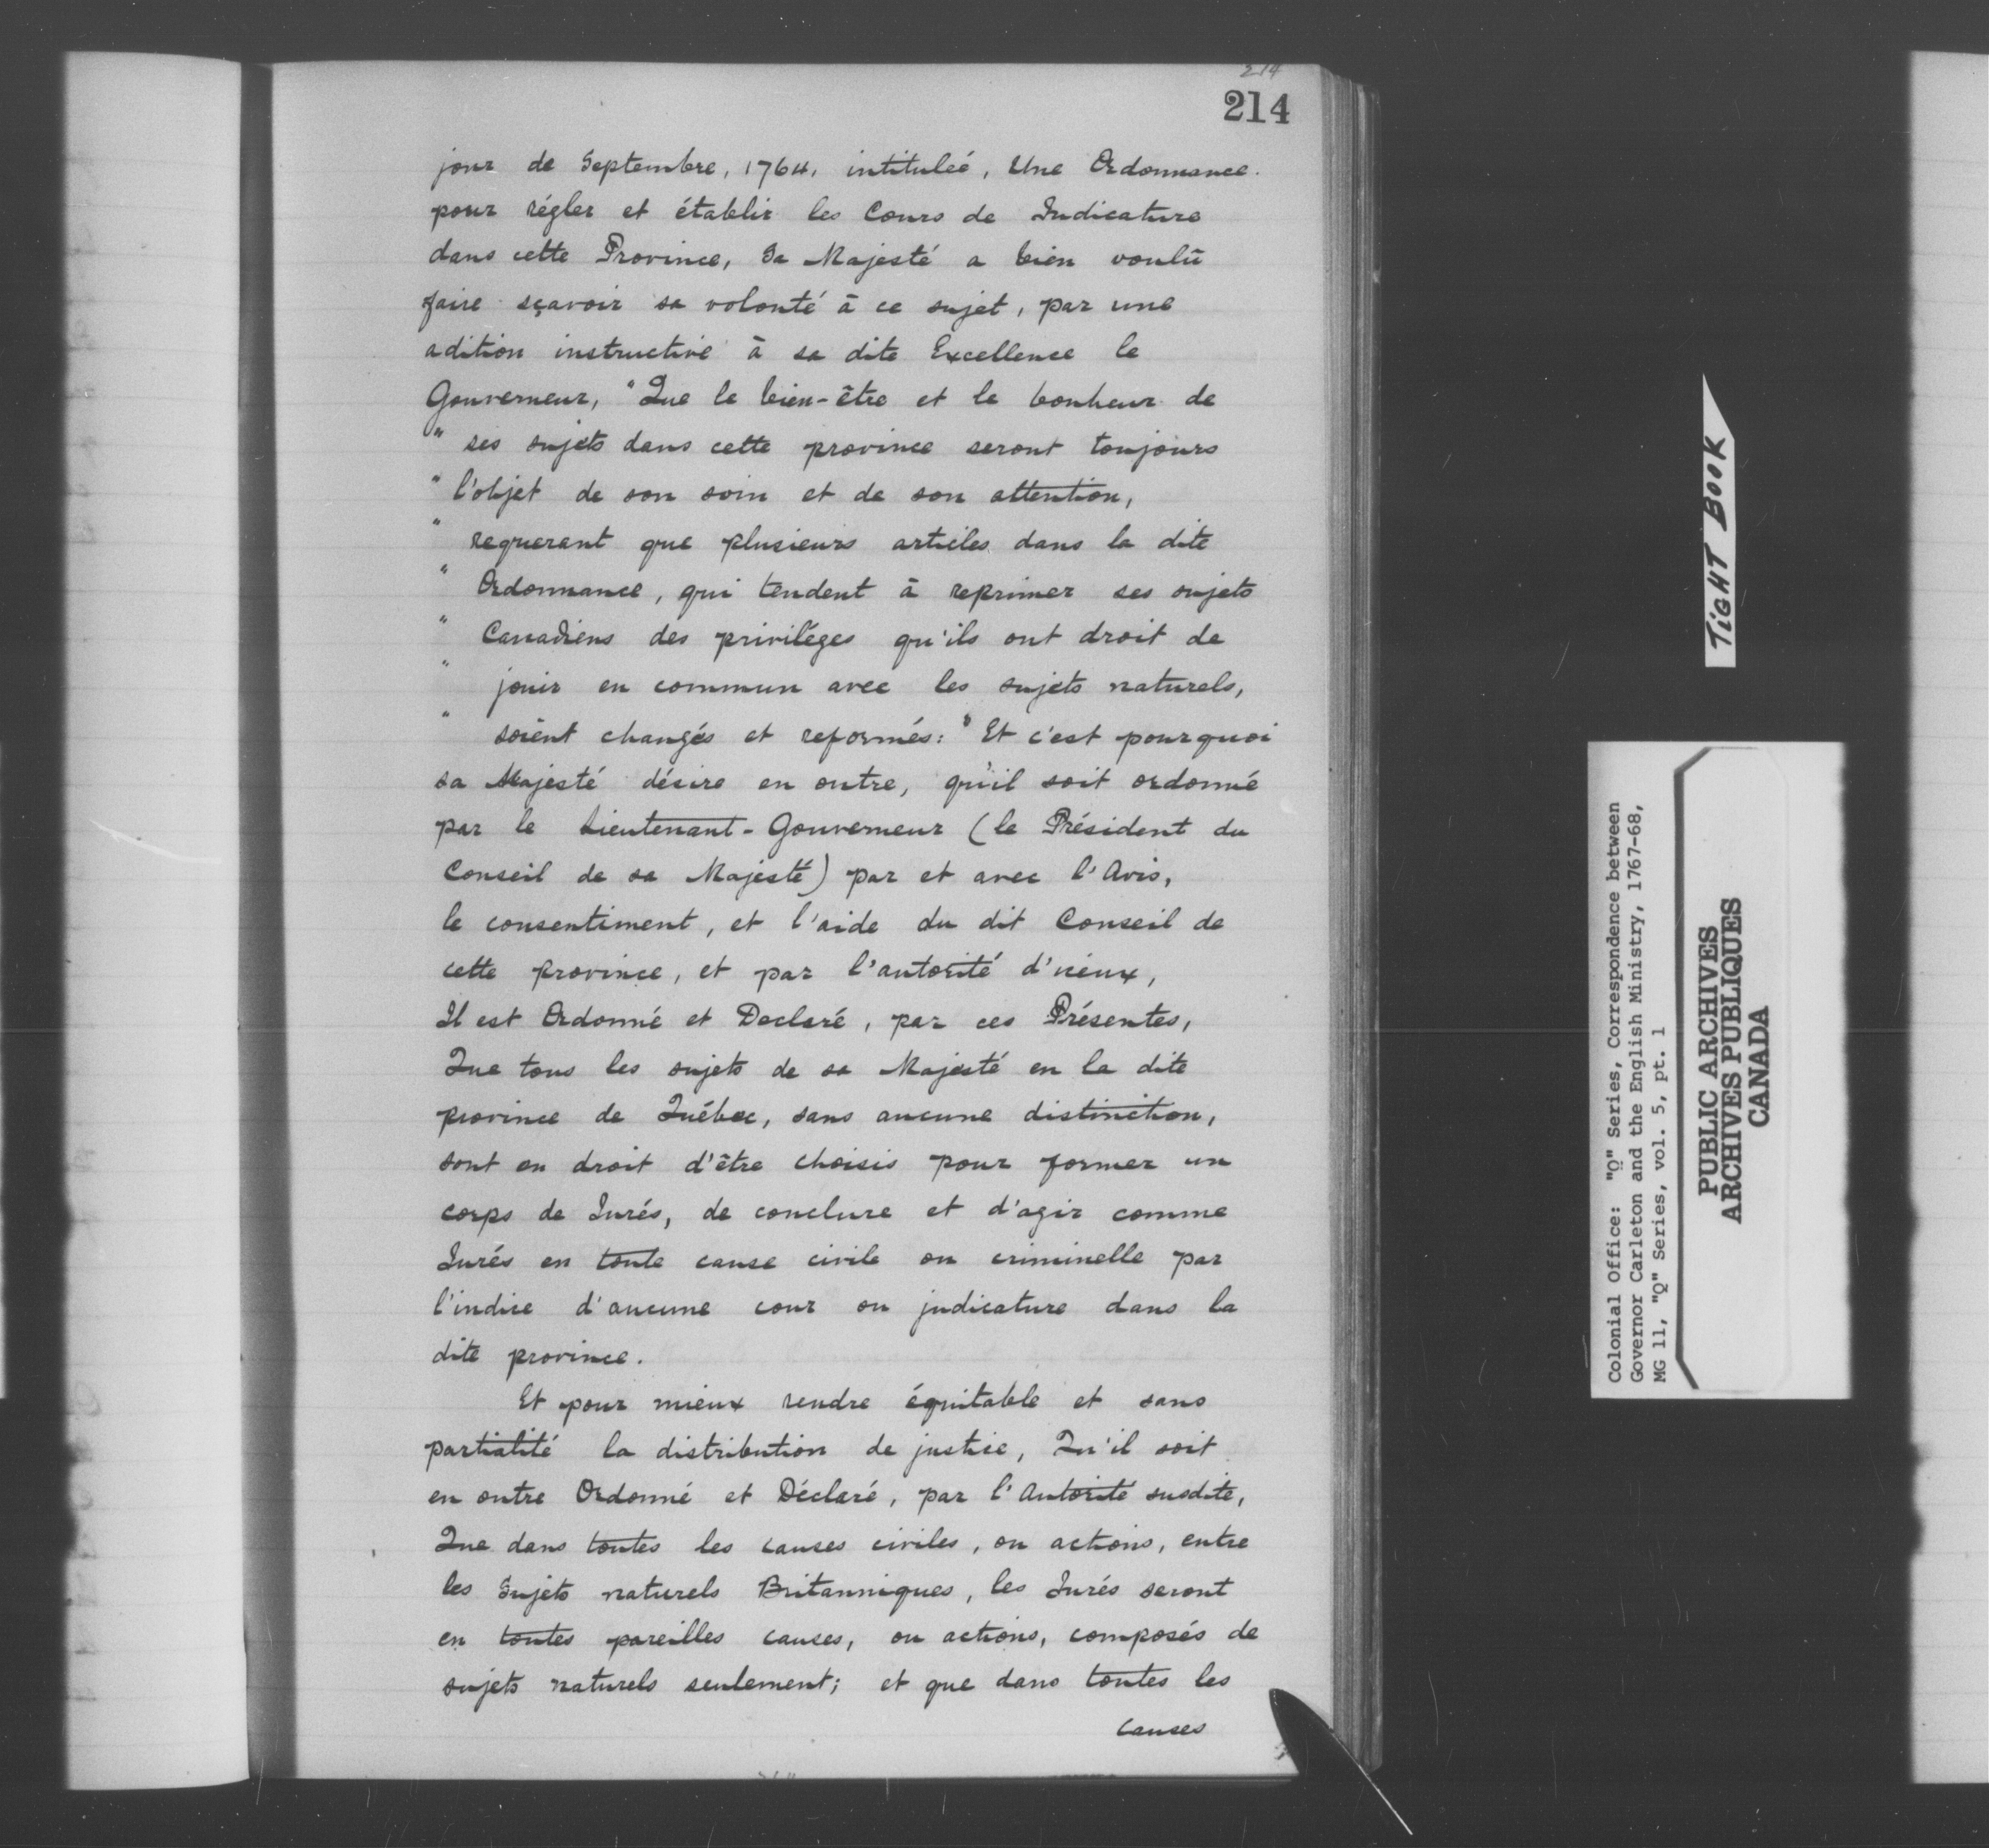 214
214
jour de Septembre, 1764, intituleé, Une Ordonnance.
pour régler et établir les Cours de Judicature
dans cette Province, Sa Majesté a bien voulû
faire sçavoir sa volonté à ce sujet, par une
adition instructive à sa dite Excellence le
Gouverneur, "Que le bien-être et le bonheur de
" ses sujets dans cette province seront toujours
" l'objet de son soin et de son attention,
" requerant que plusieurs articles dans la dite
" Ordonnance, qui tendent à reprimer ses sujets
" Canadiens des privilèges qu'ils ont droit de
" jouir en commun avec les sujets naturels,
" soient changés et reformés:" Et c'est pourquoi
sa Majesté désire en outre, qu'il soit ordonné
par le Lieutenant-Gouverneur (le Président du
Conseil de sa Majesté) par et avec l'Avis,
le consentiment, et l'aide du dit Conseil de
cette province, et par l'autorité d'iceux,
Il est Ordonné et Declaré, par ces Présentes,
Que tous les sujets de sa Majesté en la dite
province de Québec, sans aucune distinction,
sont en droit d'être choisis pour former un
corps de Jurés, de conclure et d'agir comme
Jurés en toute cause civile ou criminelle par
l'indice d'aucune cour ou judicature dans la
dite province.
Et pour mieux rendre équitable et sans
partialité la distribution de justice, Qu'il soit
en outre Ordonné et Déclaré, par l'Autorité susdite,
Que dans toutes les causes civiles, ou actions, entre
les Sujets naturels Britanniques, les Jurés seront
en toutes pareilles causes, ou actions, composés de
sujets naturels seulement; et que dans toutes les
causes
TIGHT BOOK
Colonial Office: "Q" Series, Correspondence between
Governor Carleton and the English Ministry, 1767-68,
MG 11, "Q" Series, vol. 5, pt. 1
PUBLIC ARCHIVES
ARCHIVES PUBLIQUES
CANADA